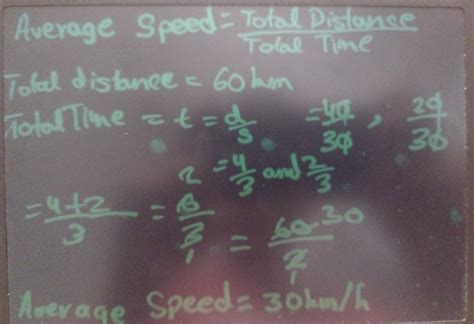 Average Speed = Total Distance / Total Time
Total distance = 60km
Total Time = t = d/s = 40/30 , 20/30
= 4/3 and 2/3
= 4+2/3 = 6/3 2 1
= 60/2 30 1
Average Speed = 30km/h